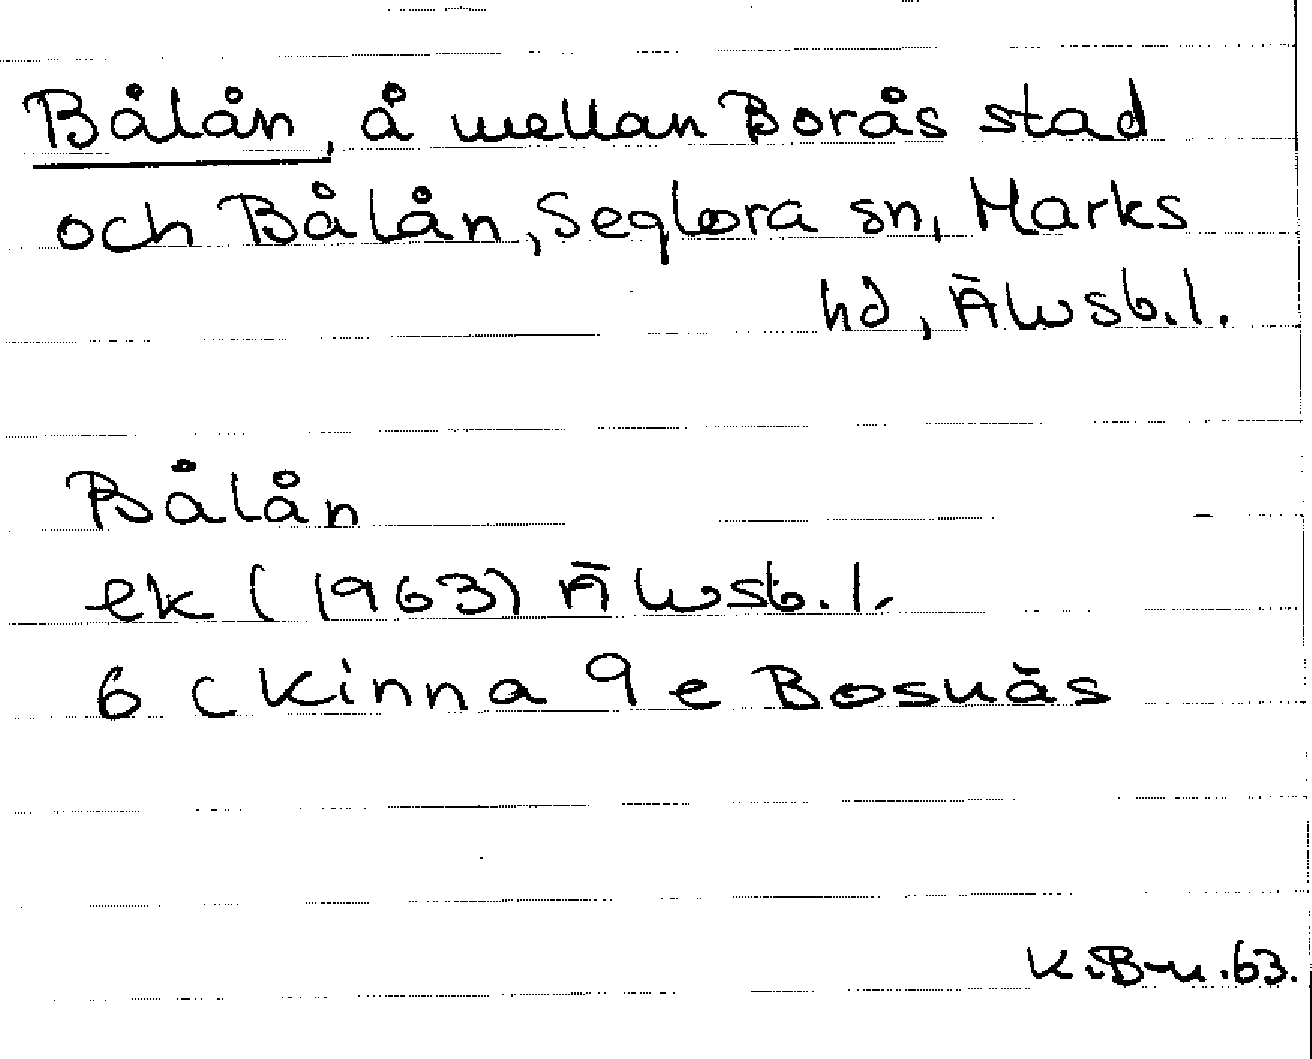 Bålån, å mellan Borås stad
och Bålån, Seglora sn, Marks
hd, Älvsb.l.
Bålån
ek (1963) Älvsb.l.
6 C Kinna 9 e Bosnäs
K.B-u.63.